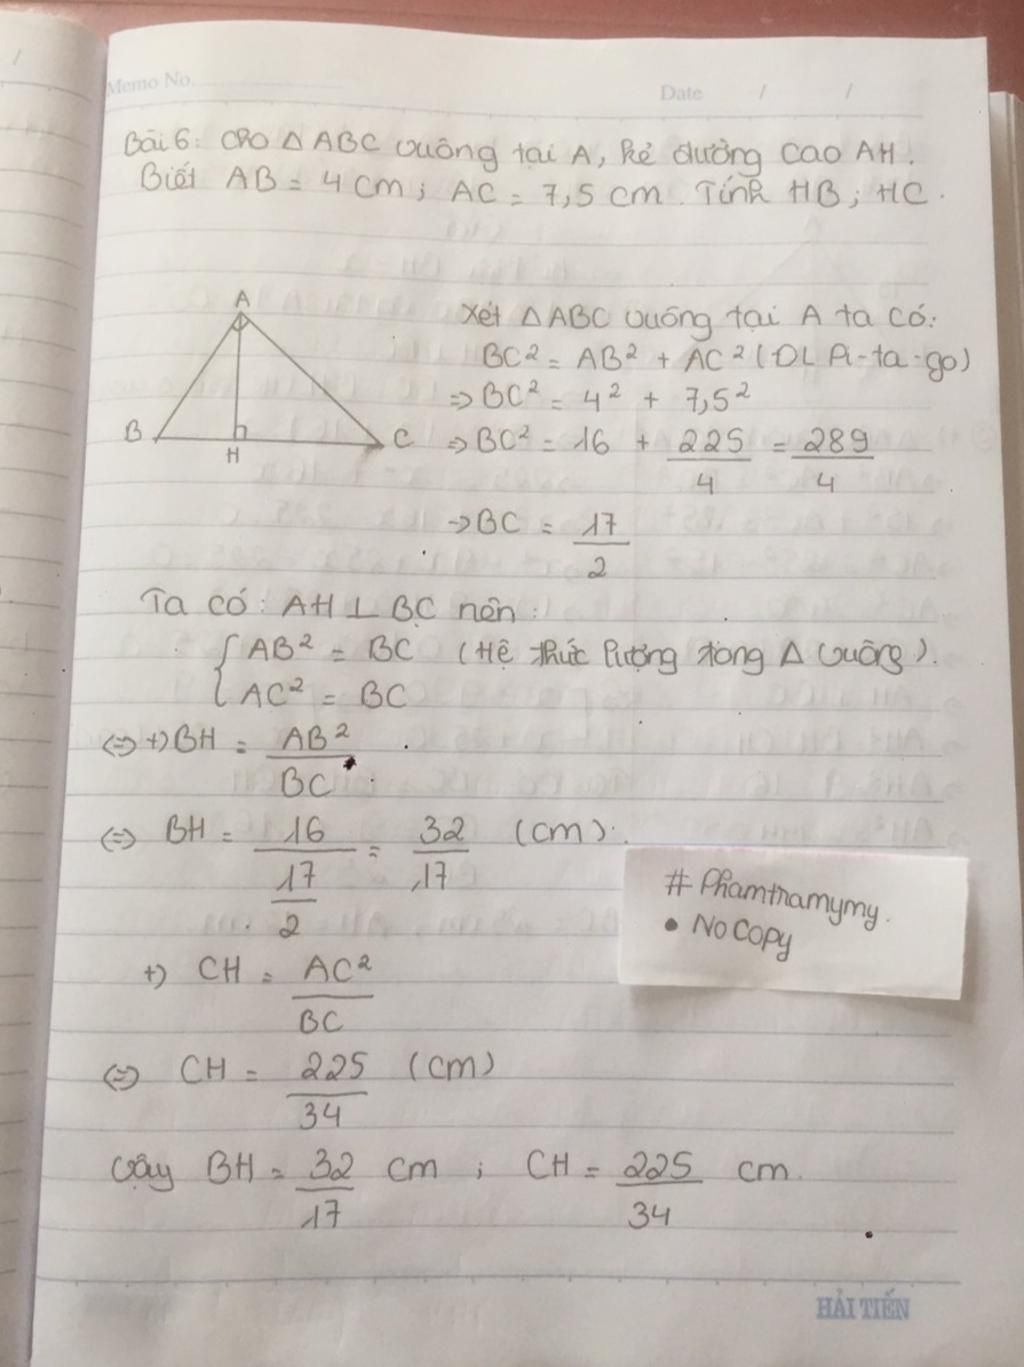 Memo No.
Date / /
Bài 6: Cho △ABC vuông tại A, kẻ đường cao AH.
Biết AB = 4 cm; AC = 7,5 cm. Tính HB; HC.
A
B
H
C
Xét △ABC vuông tại A ta có:
BC² = AB² + AC² (ĐL Pi-ta-go)
=> BC² = 4² + 7,5²
=> BC² = 16 + 225/4 = 289/4
=> BC = 17/2
Ta có: AH ⊥ BC nên:
{ AB² = BC (Hệ thức lượng trong △ vuông).
{ AC² = BC
<=> +) BH = AB²/BC
<=> BH = 16/(17/2) = 32/17 (cm).
+) CH = AC²/BC
<=> CH = 225/34 (cm)
Vậy BH = 32/17 cm ; CH = 225/34 cm.
# Phamtramymy.
• No Copy
HẢI TIẾN